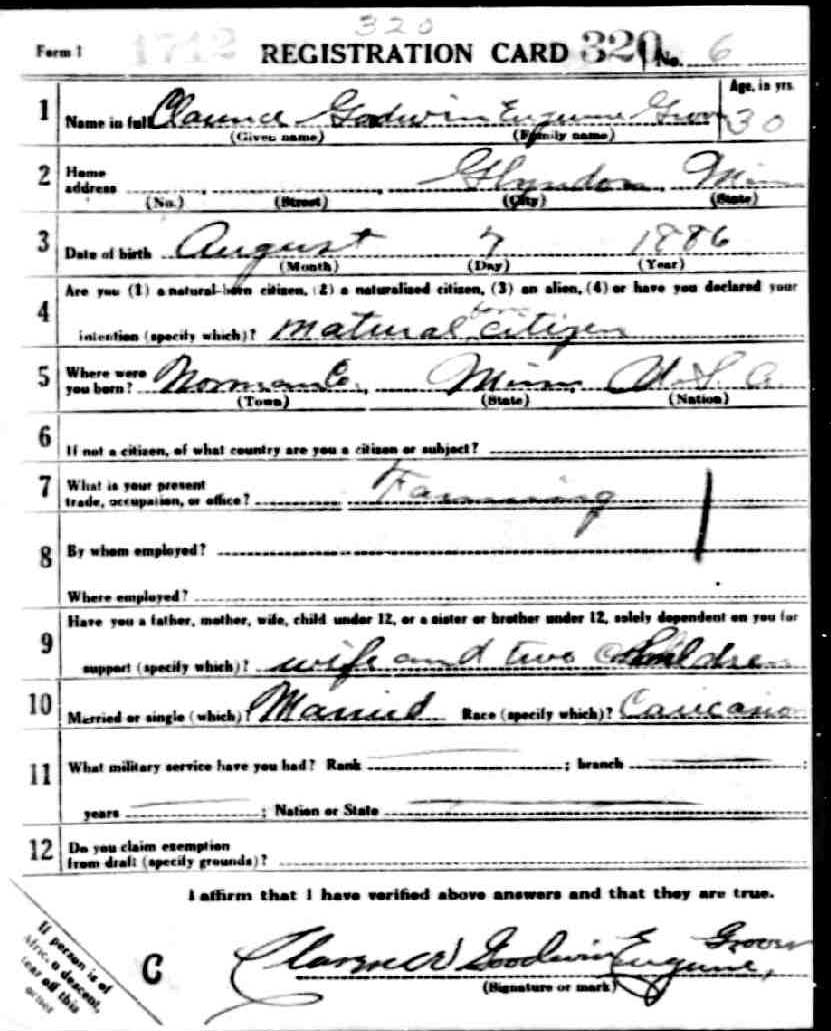 320
Form 1 1712 REGISTRATION CARD 320 No. 6
Age, in yrs.
1 Name in full Clarence Godwin Eugune Groov 30
(Given name) (Family name)
2 Home address Glyndon, Minn
(No.) (Street) (City) (State)
3 Date of birth August 7 1886
(Month) (Day) (Year)
4 Are you (1) a natural-born citizen, (2) a naturalized citizen, (3) an alien, (4) or have you declared your
born
intention (specify which)? Natural citizen
5 Where were you born? Norman Co., Minn, U.S.A.
(Town) (State) (Nation)
6 If not a citizen, of what country are you a citizen or subject?
7 What is your present
trade, occupation, or office? Farming
8 By whom employed?
Where employed?
9 Have you a father, mother, wife, child under 12, or a sister or brother under 12, solely dependent on you for
support (specify which)? wife and two Children
10 Married or single (which)? Married Race (specify which)? Caucasion
11 What military service have you had? Rank ; branch ;
years ; Nation or State
12 Do you claim exemption
from draft (specify grounds)?
I affirm that I have verified above answers and that they are true.
If person is of
African descent,
tear off this
corner
C
Clarence Goodwin Eugune, Groov
(Signature or mark)